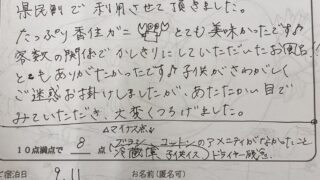 県民割で利用させて頂きました。
たっぷり香住ガニ とても美味かったです♪
客数の関係でかしきりにしていただいたお風呂!
とてもありがたかったです♪子供がさわがしく
ご迷惑お掛けしましたが、あたたかい目で
みていただき、大変くつろげました。
△マイナス点
ブラシ、コットンのアメニティがなかったこと
10点満点で 8 点 冷蔵庫 子供イス ドライヤー残念。
9.11 お名前(匿名可)